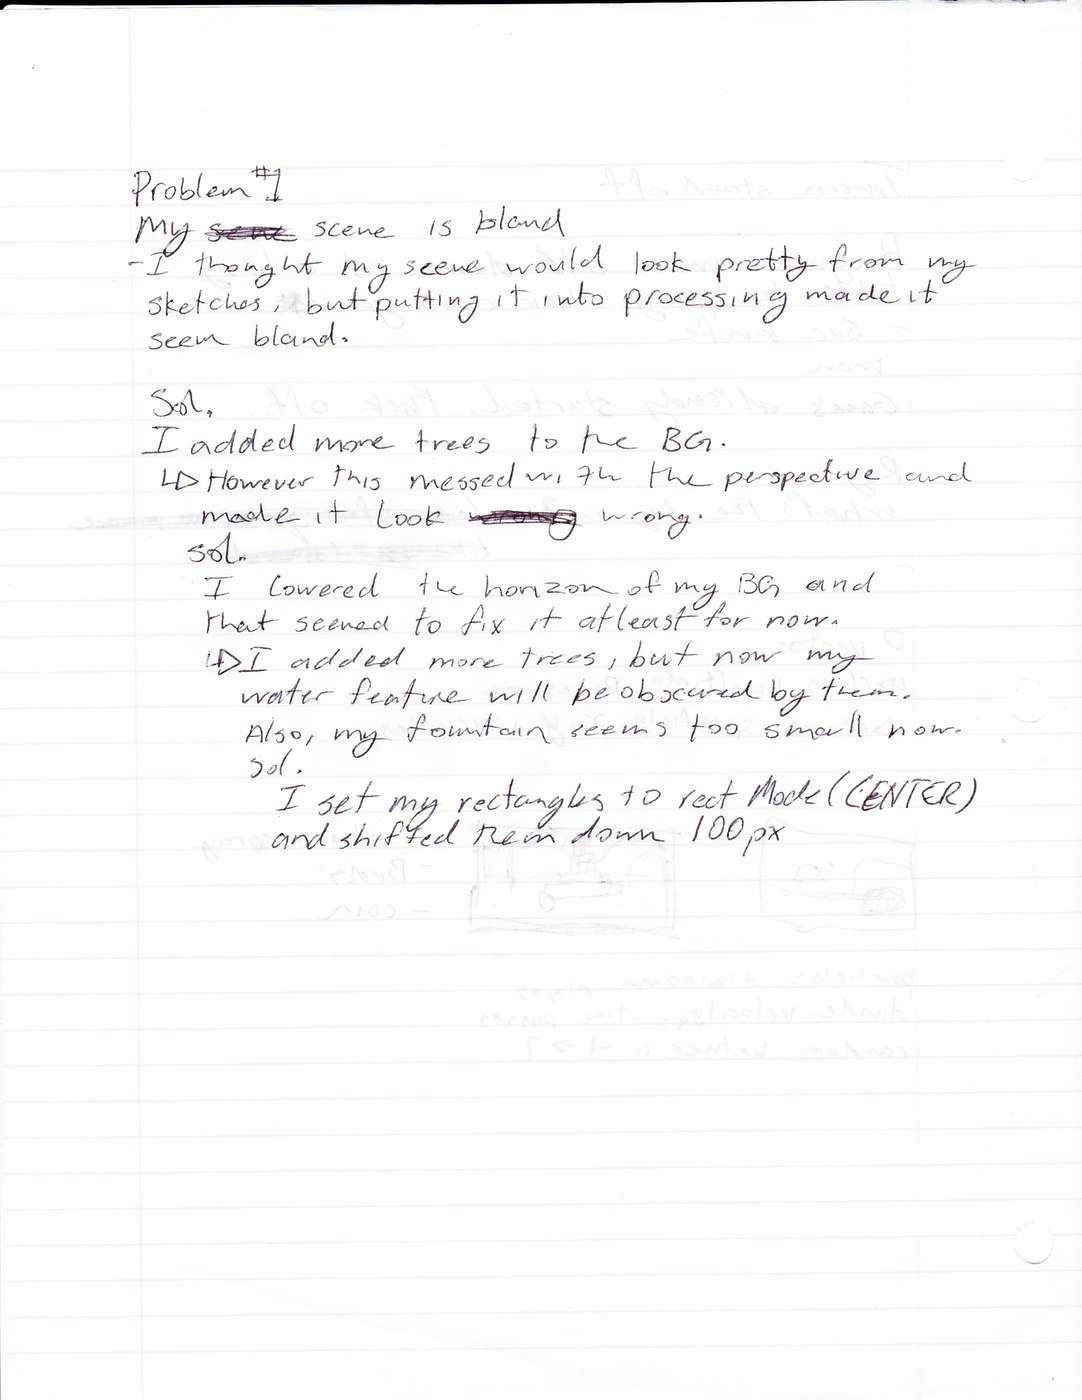 Problem #1
My scene is bland
- I thought my scene would look pretty from my
sketches, but putting it into processing made it
seem bland.
Sol.
I added more trees to the BG.
↳ However this messed with the perspective and
made it look wrong.
sol.
I lowered the horizon of my BG and
that seemed to fix it atleast for now.
↳ I added more trees, but now my
water feature will be obscured by them.
Also, my fountain seems too small now.
sol.
I set my rectangles to rect Mode (CENTER)
and shifted them down 100px